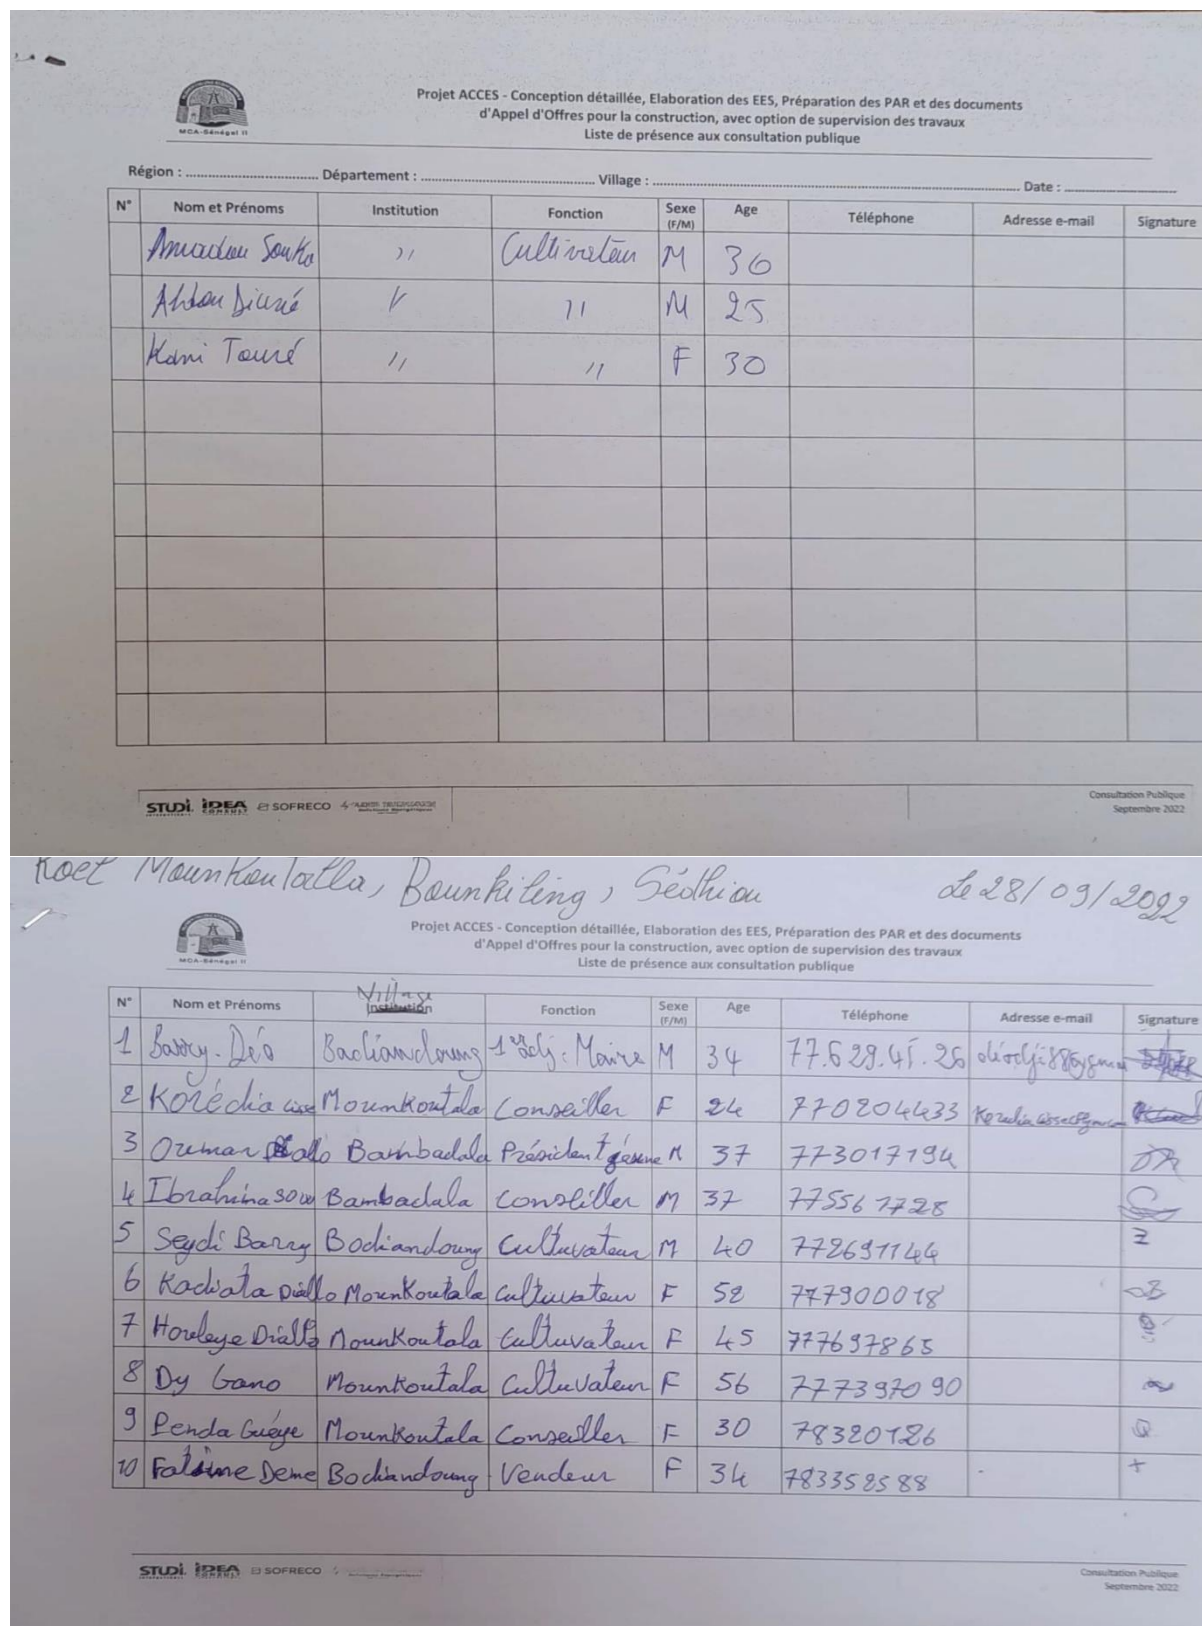 MCA-Sénégal II
Projet ACCES - Conception détaillée, Elaboration des EES, Préparation des PAR et des documents
d'Appel d'Offres pour la construction, avec option de supervision des travaux
Liste de présence aux consultation publique
Région : ................ Département : ................ Village : ................ Date : ................
N° Nom et Prénoms Institution Fonction Sexe (F/M) Age Téléphone Adresse e-mail Signature
Amadou Sonko " Cultivateur M 36
Abdou Diémé " " M 25
Kani Touré " " F 30
STUDi IDEA CONSULT SOFRECO
Consultation Publique
Septembre 2022
Koet Mounkoutalla, Bounkiling, Sédhiou Le 28/09/2022
MCA-Sénégal II
Projet ACCES - Conception détaillée, Elaboration des EES, Préparation des PAR et des documents
d'Appel d'Offres pour la construction, avec option de supervision des travaux
Liste de présence aux consultation publique
Village
N° Nom et Prénoms Institution Fonction Sexe (F/M) Age Téléphone Adresse e-mail Signature
1 Barry. Déo Badiandoung 1er adj. Maire M 34 77.629.45.26
2 Korédia Cisse Mounkoutala Conseiller F 24 770204433
3 Oumar Diallo Bambadala Président M 37 773017194
4 Ibrahima Sow Bambadala Conseiller M 37 775567728
5 Seydi Barry Bodiandoung Cultuvateur M 40 772691144
6 Kadiata Diallo Mounkoutala Cultuvateur F 52 777900018
7 Houleye Diallo Mounkoutala Cultuvateur F 45 777697865
8 Dy Gano Mounkoutala Cultuvateur F 56 777397090
9 Penda Guéye Mounkoutala Conseiller F 30 78320126
10 Fatime Deme Bodiandoung Vendeur F 34 783352588
STUDi IDEA CONSULT SOFRECO
Consultation Publique
Septembre 2022